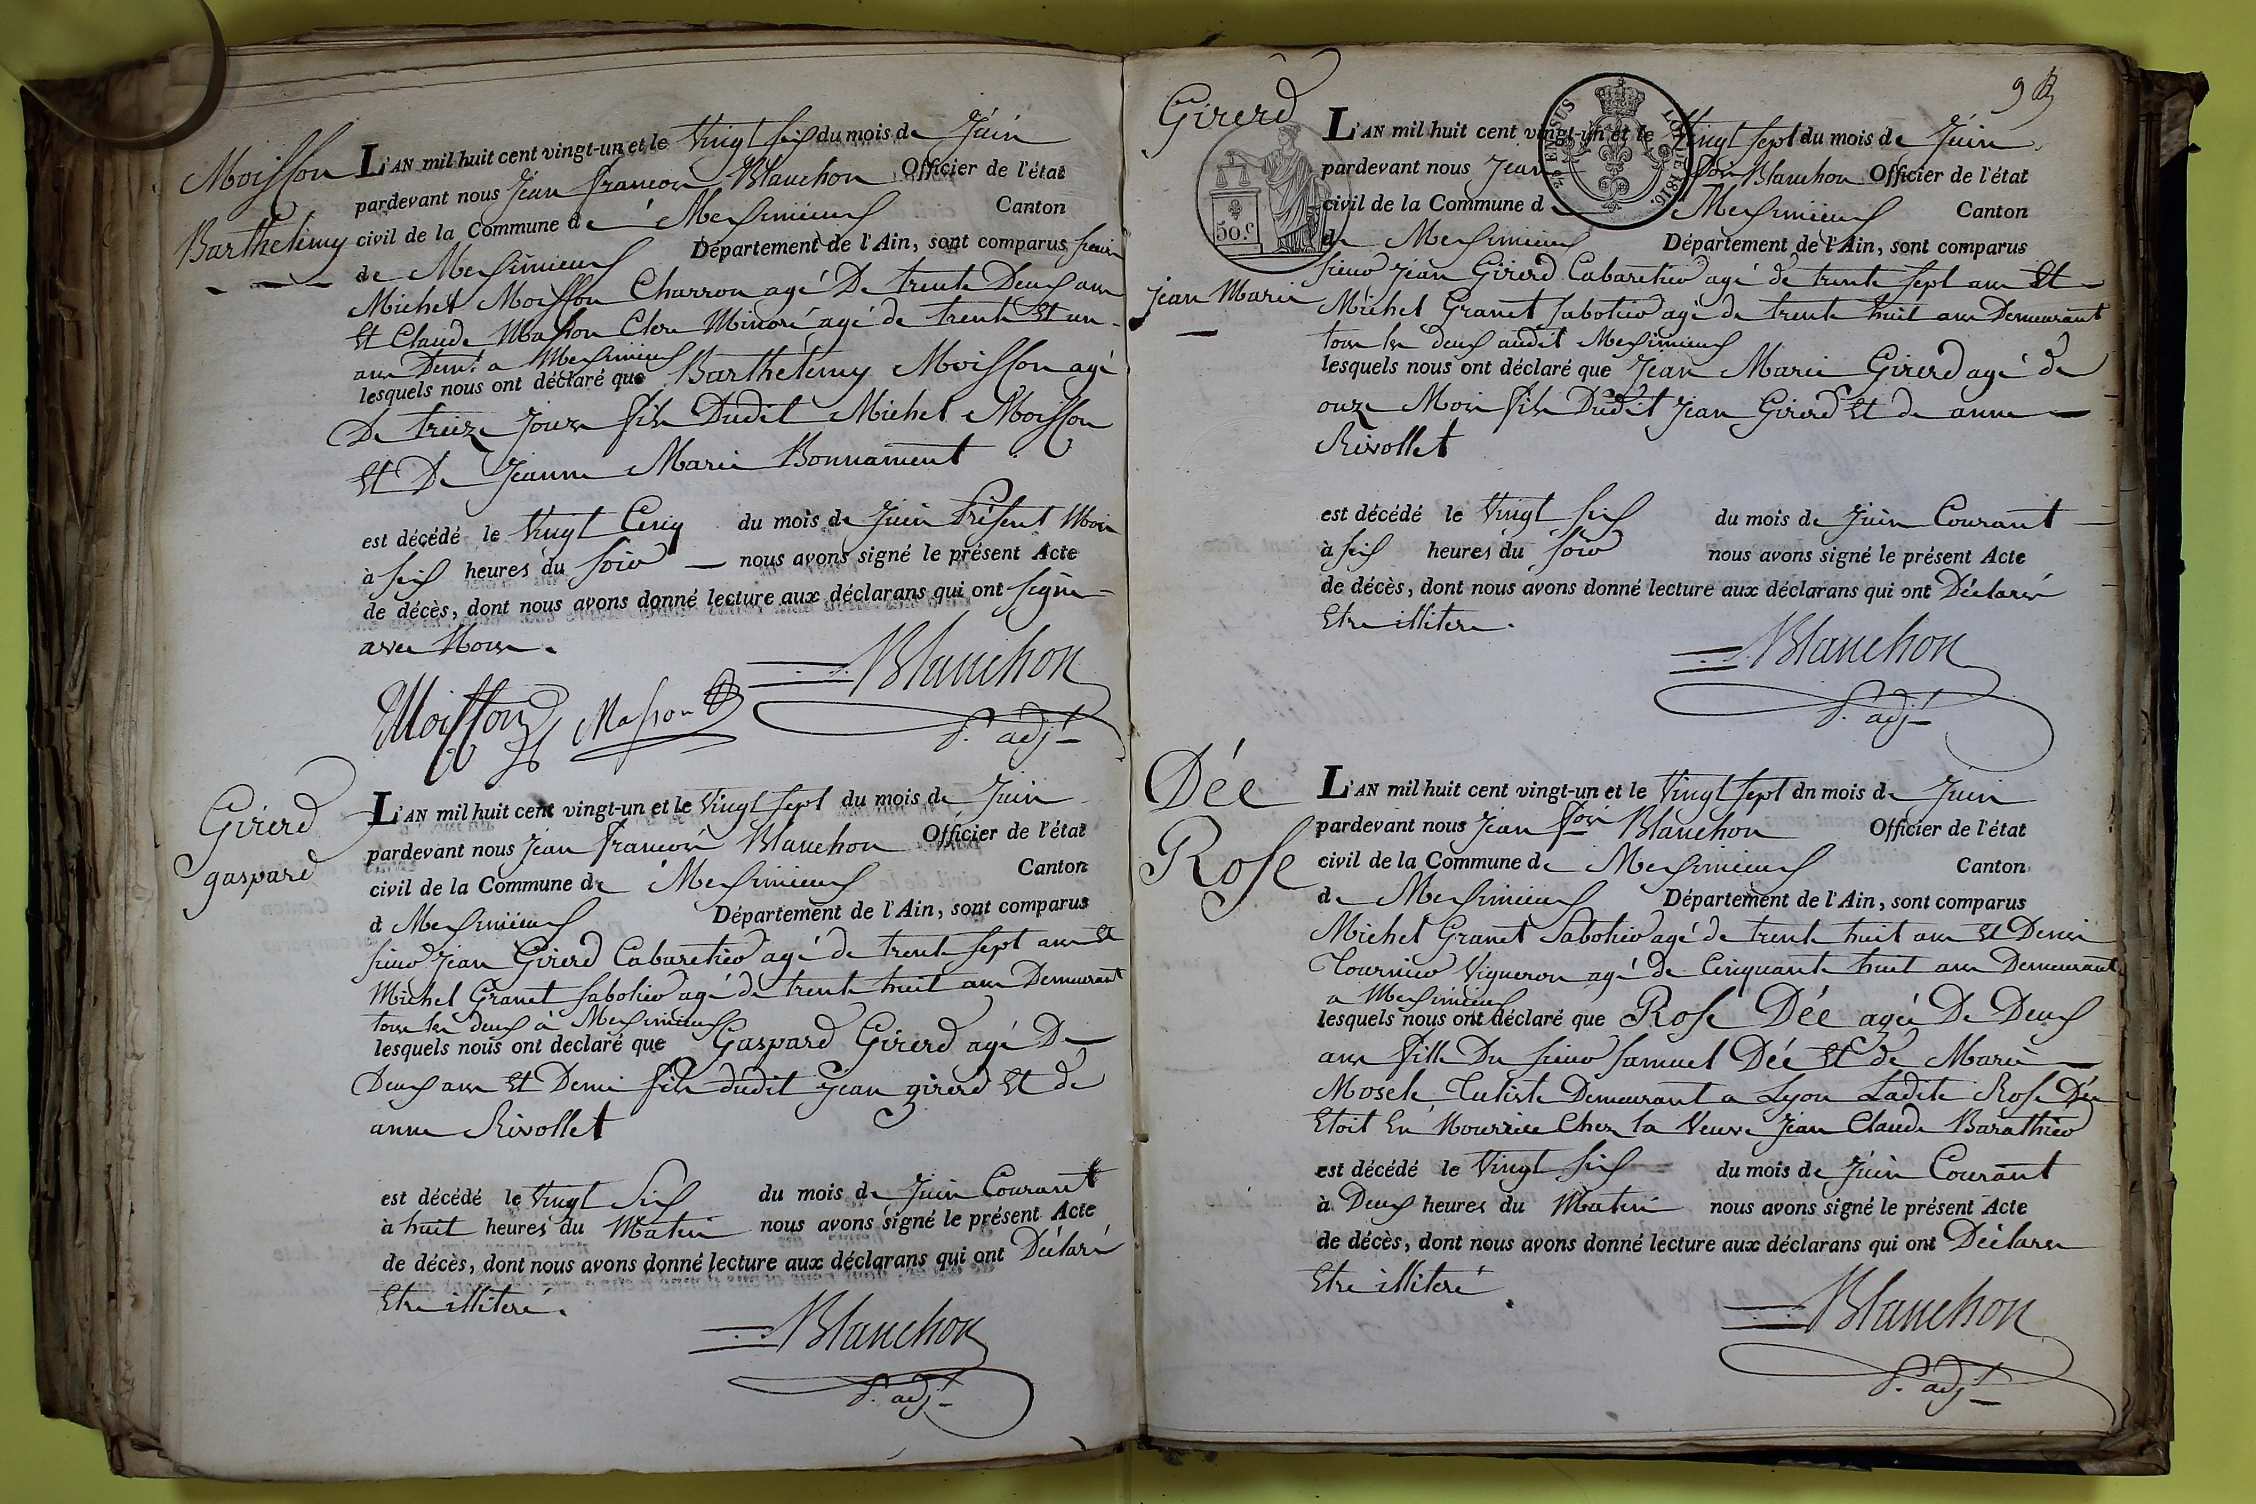 Moisson
Barthelémy
L'AN mil huit cent vingt-un et le Vingt Six du mois de Juin
pardevant nous Jean françois Blanchon Officier de l'état
civil de la Commune de Messimieux Canton
de Messimieux Département de l'Ain, sont comparus sieur
Michel Moisson Charron agé De trente Deux ans
Et Claude Masson Clerc Minoré agé de trente Et un
ans Demt a Messimieux
lesquels nous ont déclaré que Barthelémy Moisson agé
De treize Jours fils Dudit Michel Moisson
Et De Jeanne Marie Bonnament
est décédé le Vingt Cinq du mois de Juin Présent Mois
à Six heures du Soir nous avons signé le présent Acte
de décès, dont nous avons donné lecture aux déclarans qui ont signé
avec Nous.
Moisson Masson Blanchon
adjt
Girerd
gaspard
L'AN mil huit cent vingt-un et le Vingt Sept du mois de Juin
pardevant nous Jean françois Blanchon Officier de l'état
civil de la Commune de Messimieux Canton
d Messimieux Département de l'Ain, sont comparus
sieur Jean Girerd Cabaretier agé de trente Sept ans Et
Michel Granet Sabotier agé de trente huit ans Demeurant
tous les deux à Messimieux
lesquels nous ont déclaré que Gaspard Girerd agé De
Deux ans Et Demi fils dudit Jean girerd Et de
anne Rivollet
est décédé le Vingt Six du mois de Juin Courant
à huit heures du Matin nous avons signé le présent Acte
de décès, dont nous avons donné lecture aux déclarans qui ont Déclaré
Etre illiteré.
Blanchon
adjt
93
Girerd
jean Marie
50 c
EN SUS
LOI DE 1816.
L'AN mil huit cent vingt-un et le Vingt Sept du mois de Juin
pardevant nous Jean fois Blanchon Officier de l'état
civil de la Commune d Messimieux Canton
de Messimieux Département de l'Ain, sont comparus
sieur Jean Girerd Cabaretier agé de trente Sept ans Et
Michel Granet Sabotier agé de trente huit ans Demeurant
tous les deux audit Messimieux
lesquels nous ont déclaré que Jean Marie Girerd agé de
onze Mois fils Dudit Jean Girerd Et de anne
Rivollet
est décédé le Vingt Six du mois de Juin Courant
à Six heures du Soir nous avons signé le présent Acte
de décès, dont nous avons donné lecture aux déclarans qui ont Déclarés
Etre illiteré.
Blanchon
adjt
Dée
Rose
L'AN mil huit cent vingt-un et le Vingt Sept dn mois de Juin
pardevant nous Jean fois Blanchon Officier de l'état
civil de la Commune de Messimieux Canton
de Messimieux Département de l'Ain, sont comparus
Michel Granet Sabotier agé de trente huit ans Et Denis
Tournier Vigneron agé de Cinquante huit ans Demeurant
a Messimieux
lesquels nous ont déclaré que Rose Dée agée De Deux
ans fille Du sieur Samuel Dée Et de Marie
Mosele Tuliste Demeurant a Lyon Ladite Rose Dée
Etoit En Nourrice Chez la Veuve Jean Claude Barathier
est décédé le Vingt Six du mois de Juin Courant
à Deux heures du Matin nous avons signé le présent Acte
de décès, dont nous avons donné lecture aux déclarans qui ont Déclarés
Etre illiteré.
Blanchon
adjt